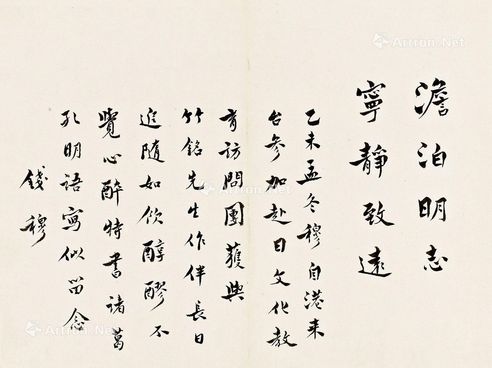 澹泊明志
寧靜致遠
乙未孟冬穆自港来
台參加赴日文化教
育訪問團獲與
竹銘先生作伴長日
追随如飲醇醪不
覺心醉特書諸葛
孔明語寫似留念
錢穆
Artron.Net
Artron.Net
Artron.Net
Artron.Net